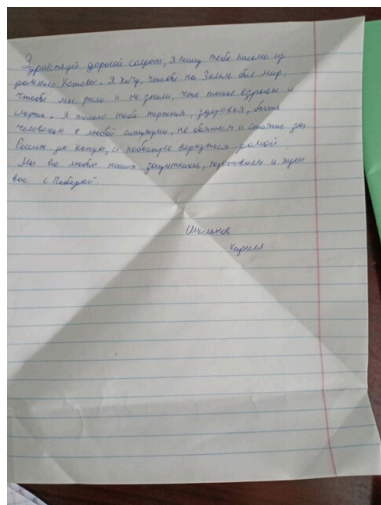 Здравствуй дорогой солдат, я пишу тебе письмо из
далекого Кстово. Я хочу, чтобы на Земле был мир,
чтобы мы росли и не знали, что такое взрывы и
смерть. Я желаю тебе терпения, здоровья, быть
человеком в любой ситуации, не бояться и стоять за
Россию до конца, и побыстрее вернуться домой.
Мы все любим наших защитников, гордимся и ждем
вас с Победой.
Кирилл